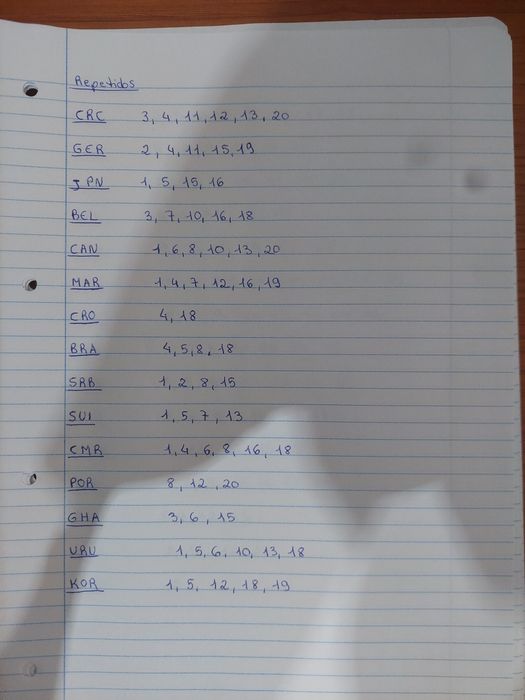 Repetidos
CRC 3, 4, 11, 12, 13, 20
GER 2, 4, 11, 15, 19
JPN 1, 5, 15, 16
BEL 3, 7, 10, 16, 18
CAN 1, 6, 8, 10, 13, 20
MAR 1, 4, 7, 12, 16, 19
CRO 4, 18
BRA 4, 5, 8, 18
SRB 1, 2, 8, 15
SUI 1, 5, 7, 13
CMR 1, 4, 6, 8, 16, 18
POR 8, 12, 20
GHA 3, 6, 15
URU 1, 5, 6, 10, 13, 18
KOR 1, 5, 12, 18, 19